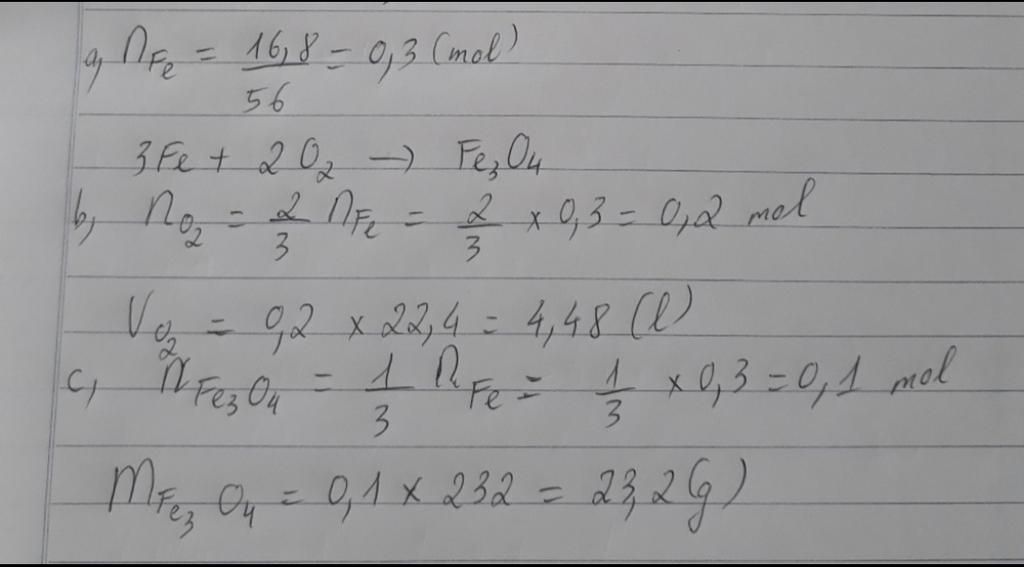 a, nFe = 16,8/56 = 0,3 (mol)
3Fe + 2O₂ → Fe₃O₄
b, nO₂ = 2/3 nFe = 2/3 × 0,3 = 0,2 mol
VO₂ = 0,2 × 22,4 = 4,48 (l)
c, nFe₃O₄ = 1/3 nFe = 1/3 × 0,3 = 0,1 mol
mFe₃O₄ = 0,1 × 232 = 23,2 (g)